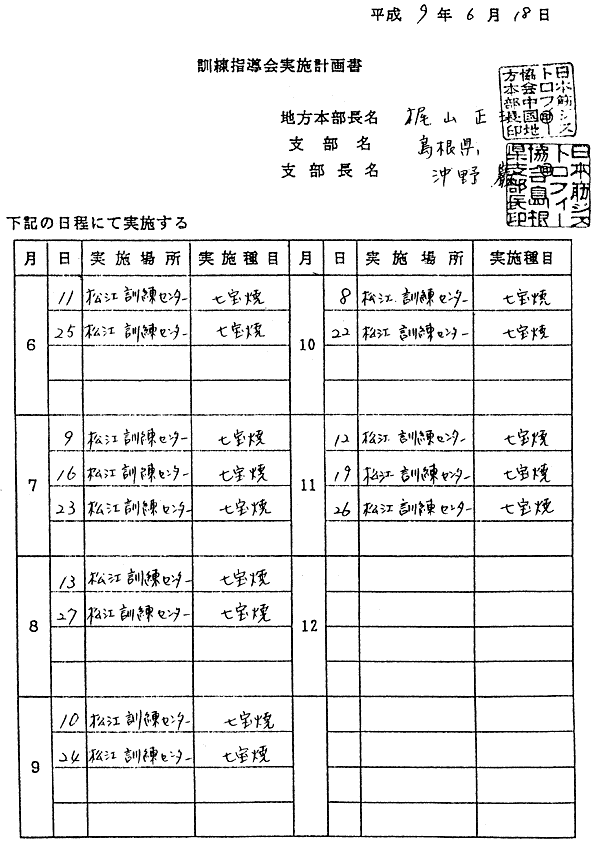 平成 9年 6月 18日
訓練指導会実施計画書
地方本部長名 梶山正
支部名 島根県
支部長名 沖野 巌
日本筋ジストロフィー協会中国地方本部長印
日本筋ジストロフィー協会島根県支部長印
下記の日程にて実施する
月 日 実施場所 実施種目 月 日 実施場所 実施種目
6 11 松江訓練センター 七宝焼 10 8 松江訓練センター 七宝焼
25 松江訓練センター 七宝焼 22 松江訓練センター 七宝焼
7 9 松江訓練センター 七宝焼 11 12 松江訓練センター 七宝焼
16 松江訓練センター 七宝焼 19 松江訓練センター 七宝焼
23 松江訓練センター 七宝焼 26 松江訓練センター 七宝焼
8 13 松江訓練センター 七宝焼 12
27 松江訓練センター 七宝焼
9 10 松江訓練センター 七宝焼
24 松江訓練センター 七宝焼